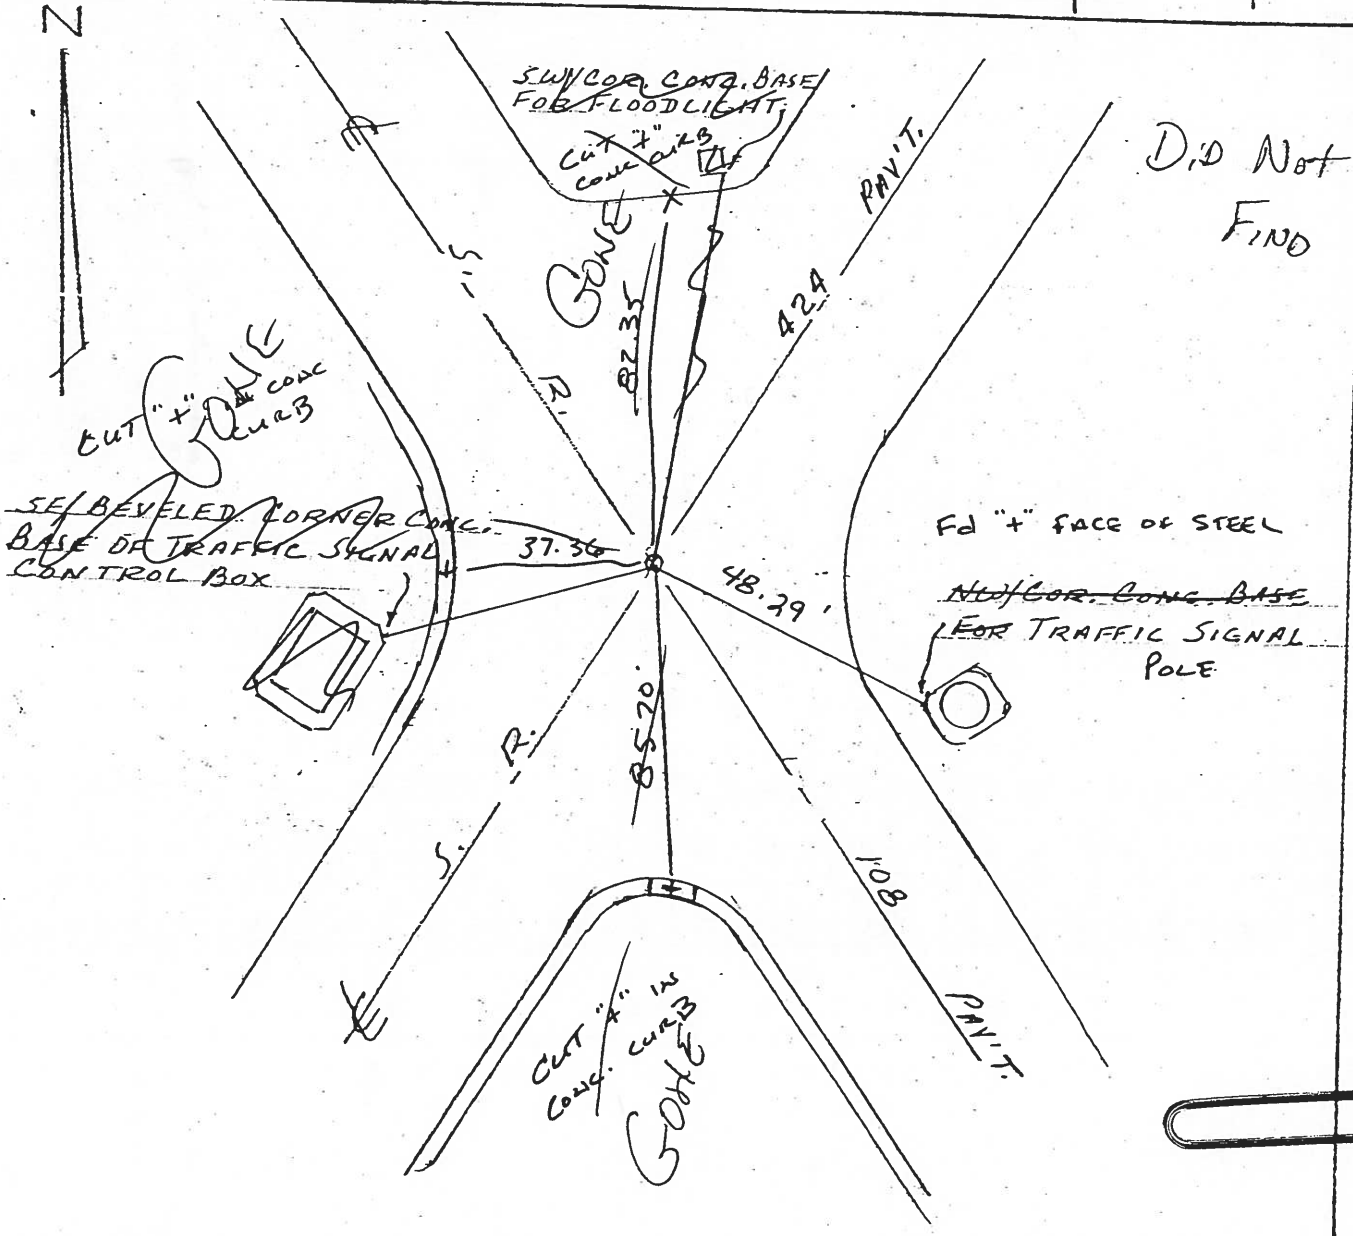 N
S.W/COR. CONC. BASE
FOR FLOODLIGHT
CUT "+"
CONC CURB
GONE
82.35
DID NOT
FIND
PAV'T.
424
S.
R.
CUT "+" IN CONC
CURB
GONE
SE/BEVELED CORNER CONC.
BASE OF TRAFFIC SIGNAL
CONTROL BOX
37.36
48.29'
Fd "+" FACE OF STEEL
NW/COR. CONC. BASE
FOR TRAFFIC SIGNAL
POLE
85.70'
S. R.
108
PAV'T.
CUT "+" IN
CONC. CURB
GONE